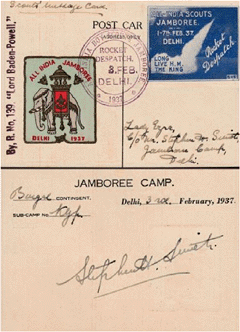 Scouts Message Card.
POST CAR
By, R. No. 139 "Lord Baden-Powell."
ALL INDIA JAMBOREE
DELHI 1937
ROCKET
DESPATCH.
3. FEB.
DELHI.
1937
ALL INDIA SCOUTS
JAMBOREE
1-7TH FEB. 37
DELHI.
LONG
LIVE H.M.
THE KING
Rocket
Despatch.
c/o Mr. Stephen H. Smith
Jamboree Camp,
Delhi.
JAMBOREE CAMP.
CONTINGENT. Delhi, 3rd February, 1937.
SUB-CAMP No.
Stephen H. Smith.